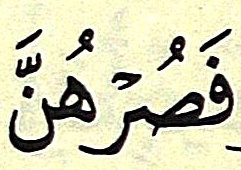 فَصُرۡهُنَّ